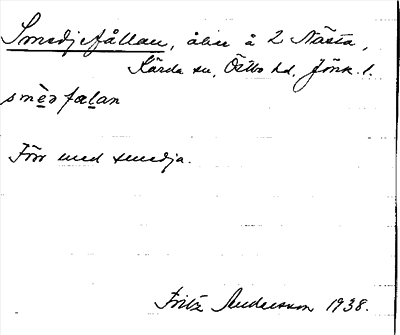 Smedjefållan, åker å 2 Nästa,
Kärda sn, Östbo hd, Jönk. l.
smèd fælan
Förr med smedja.
Fritz Andersson 1938.